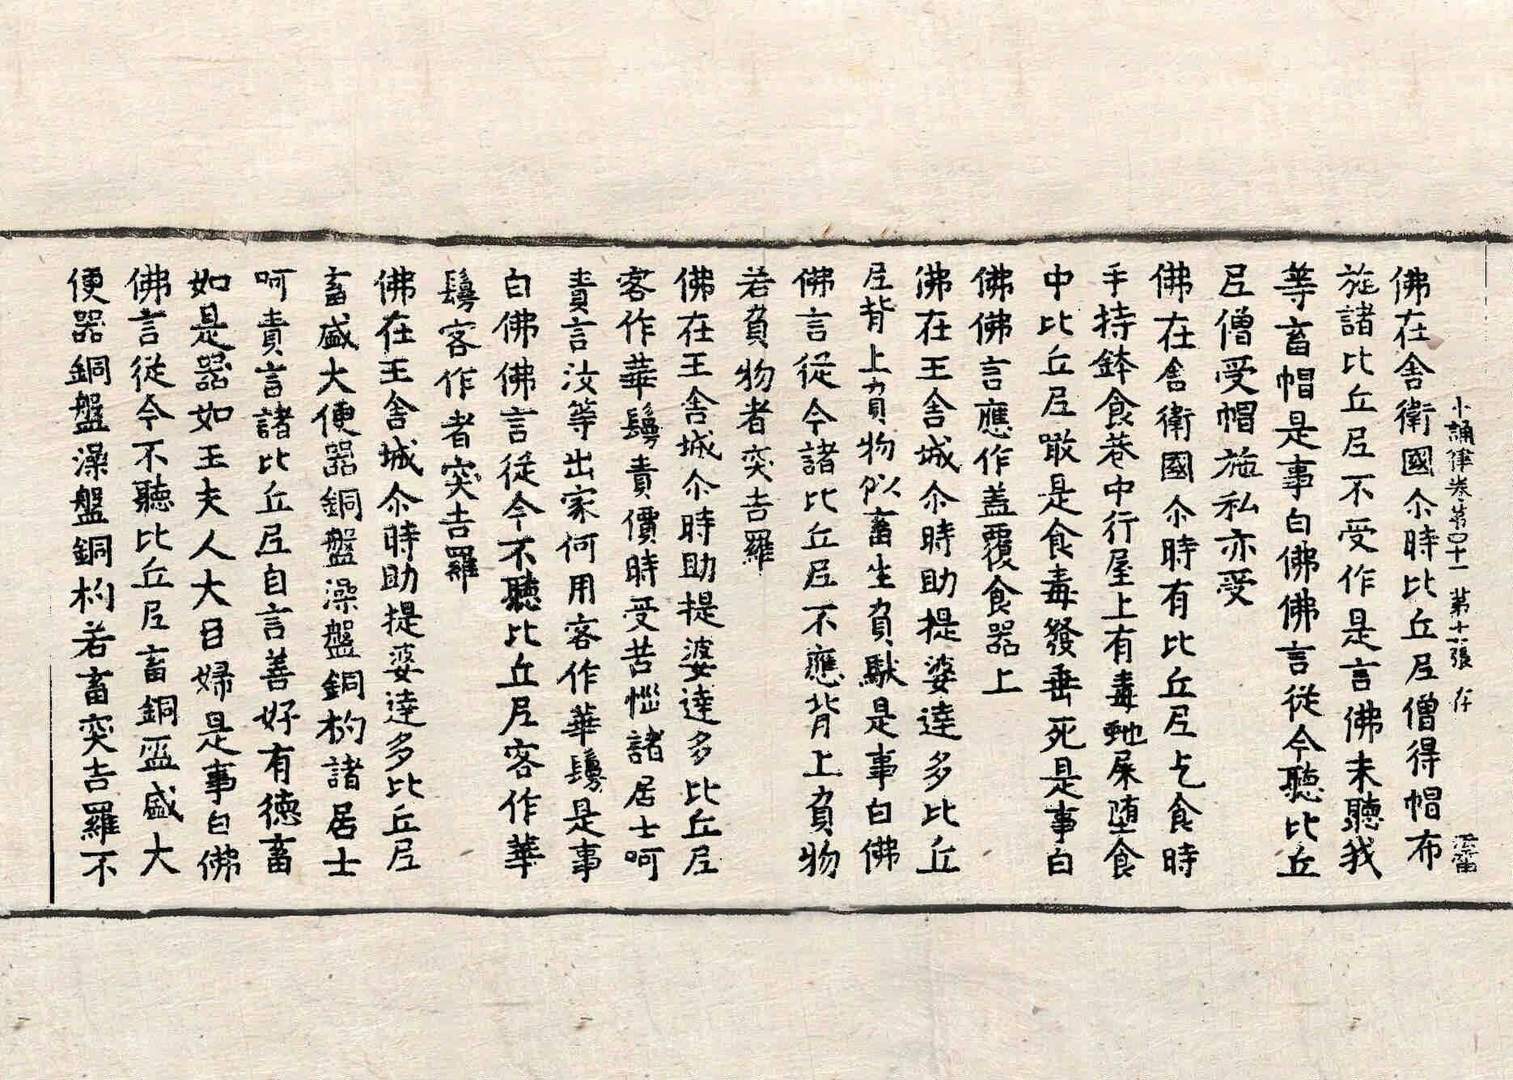 小誦律卷第四十一 第十張 存
佛在舍衛國尒時比丘尼僧得帽布
施諸比丘尼不受作是言佛未聽我
等畜帽是事白佛佛言從今聽比丘
尼僧受帽施私亦受
佛在舍衛國尒時有比丘尼乞食時
手持鉢食巷中行屋上有毒虵屎墮食
中比丘尼噉是食毒發垂死是事白
佛佛言應作盖覆食器上
佛在王舍城尒時助提婆達多比丘
尼背上負物似畜生負馱是事白佛
佛言從今諸比丘尼不應背上負物
若負物者突吉羅
佛在王舍城尒時助提婆達多比丘尼
客作華鬘責價時受苦惱諸居士呵
責言汝等出家何用客作華鬘是事
白佛佛言從今不聽比丘尼客作華
鬘客作者突吉羅
佛在王舍城尒時助提婆達多比丘尼
畜盛大便器銅盤澡盤銅杓諸居士
呵責言諸比丘尼自言善好有德畜
如是器如王夫人大臣婦是事白佛
佛言從今不聽比丘尼畜銅盃盛大
便器銅盤澡盤銅杓若畜突吉羅不